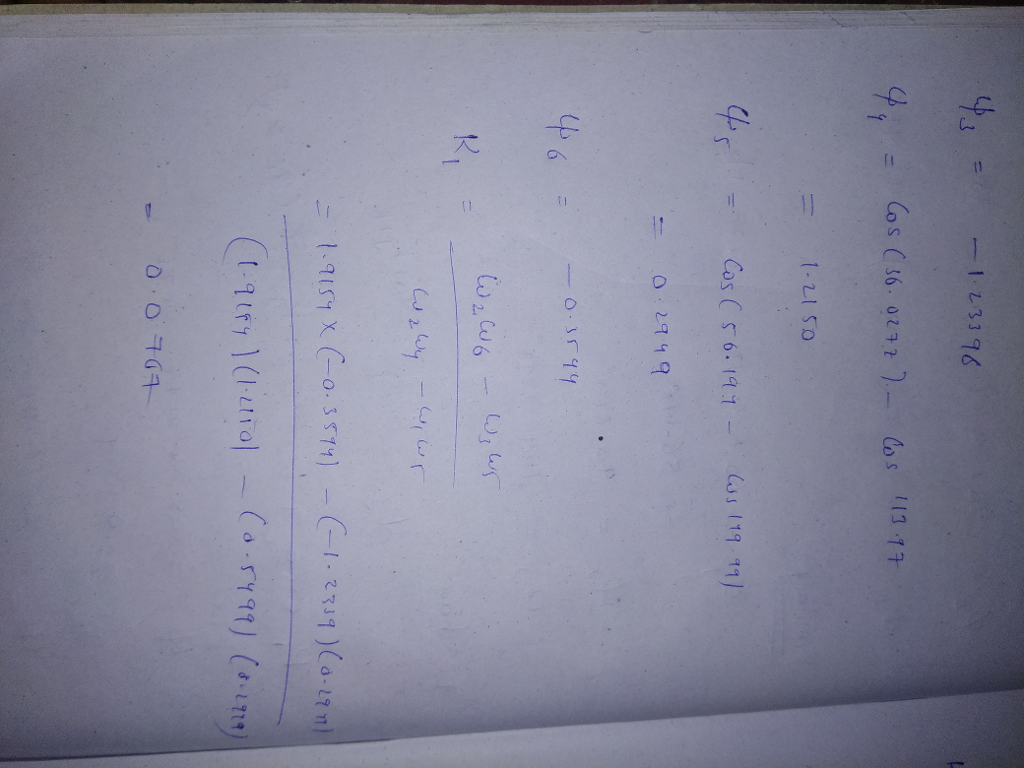 ω3 = -1.23396
ω4 = cos(36.0272) - cos 113.97
= 1.2150
ω5 = cos(56.197 - cos 199.99)
= 0.2949
ω6 = -0.3594
K1 = ω2ω6 - ω3ω5
ω2ω4 - ω1ω5
= 1.9154 × (-0.3594) - (-1.2339)(0.2949)
(1.9154)(1.2150) - (0.5499)(0.2949)
- 0.0767